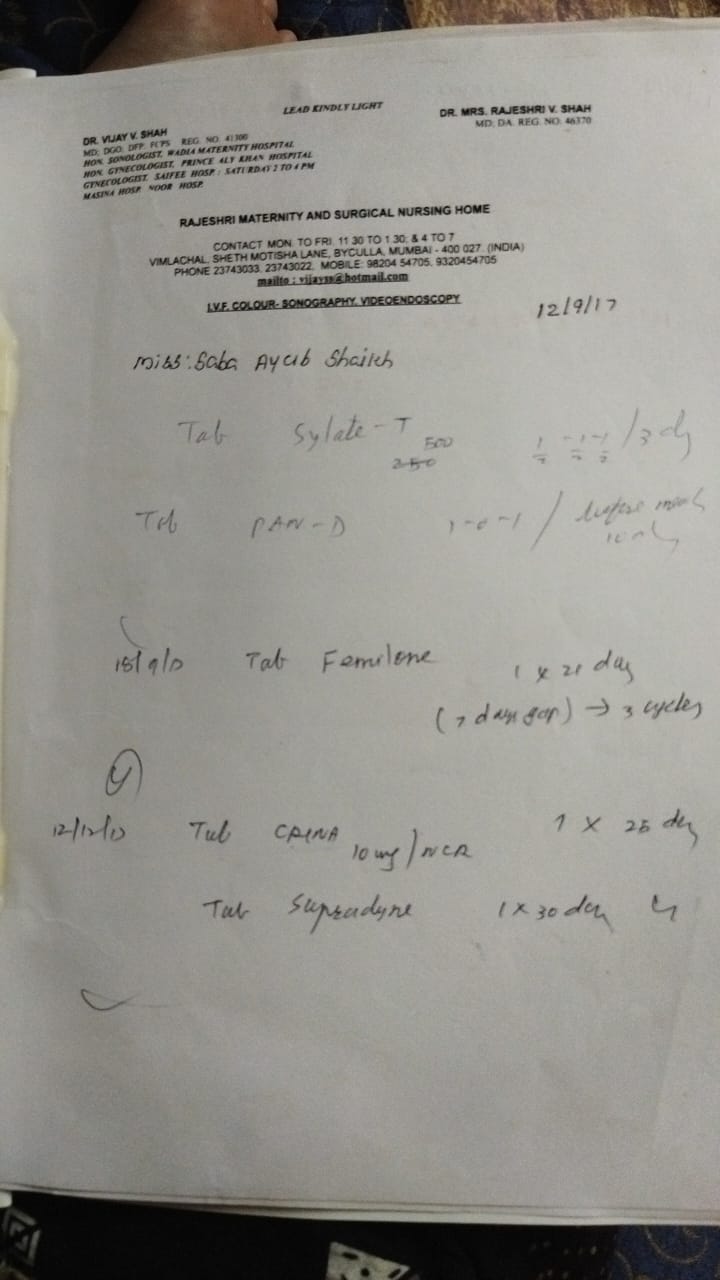 LEAD KINDLY LIGHT
DR. VIJAY V. SHAH
MD; DGO; DFP; FCPS REG. NO. 41300
HON. SONOLOGIST, WADIA MATERNITY HOSPITAL
HON. GYNECOLOGIST, PRINCE ALY KHAN HOSPITAL
GYNECOLOGIST. SAIFEE HOSP.: SATURDAY 2 TO 4 PM
MASINA HOSP. NOOR HOSP.
DR. MRS. RAJESHRI V. SHAH
MD; DA. REG. NO: 46370
RAJESHRI MATERNITY AND SURGICAL NURSING HOME
CONTACT MON. TO FRI. 11 30 TO 1 30; & 4 TO 7
VIMLACHAL, SHETH MOTISHA LANE, BYCULLA, MUMBAI - 400 027. (INDIA)
PHONE 23743033, 23743022, MOBILE: 98204 54705, 9320454705
mailto : vijayss@hotmail.com
I.V.F. COLOUR- SONOGRAPHY. VIDEOENDOSCOPY
12/9/17
Miss: Saba Ayub Shaikh
Tab Sylate-T 500
250
1/2 - 1/2 - 1/2 / 3 dy
Tab PAN-D 1-0-1 / before meals
Tab Femilone 1 x 21 day
(7 days gap) → 3 cycles
Tab CRINA 10 mg / NCR 1 X 25 day
Tab Supradyne 1 x 30 day